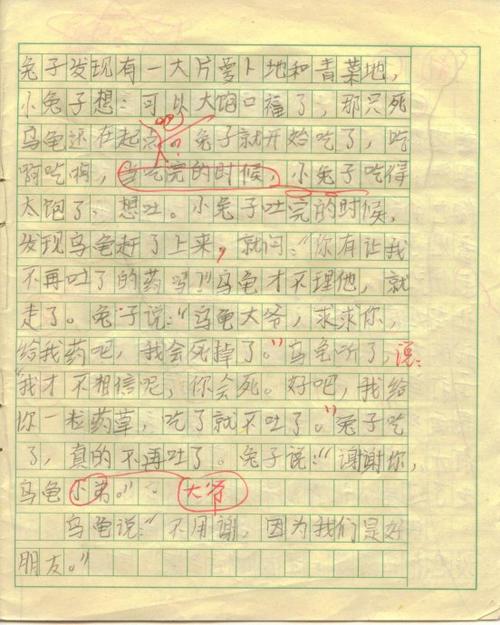 兔子发现有一大片萝卜地和青菜地，
小兔子想：可以大饱口福了，那只死
乌龟还在起点。兔子就开始吃了，吃
啊吃啊，当吃完的时候，小兔子吃得
太饱了，想吐。小兔子吐完的时候，
发现乌龟赶了上来，就问：“你有让我
不再吐了的药吗？”乌龟才不理他，就
走了。兔子说：“乌龟大爷，求求你，
给我药吧，我会死掉了。”乌龟听了，说：
“我才不相信呢，你会死。好吧，我给
你一粒药草，吃了就不吐了。”兔子吃
了，真的不再吐了。兔子说：“谢谢你，
乌龟小弟。” 大爷
乌龟说：“不用谢，因为我们是好
朋友。”